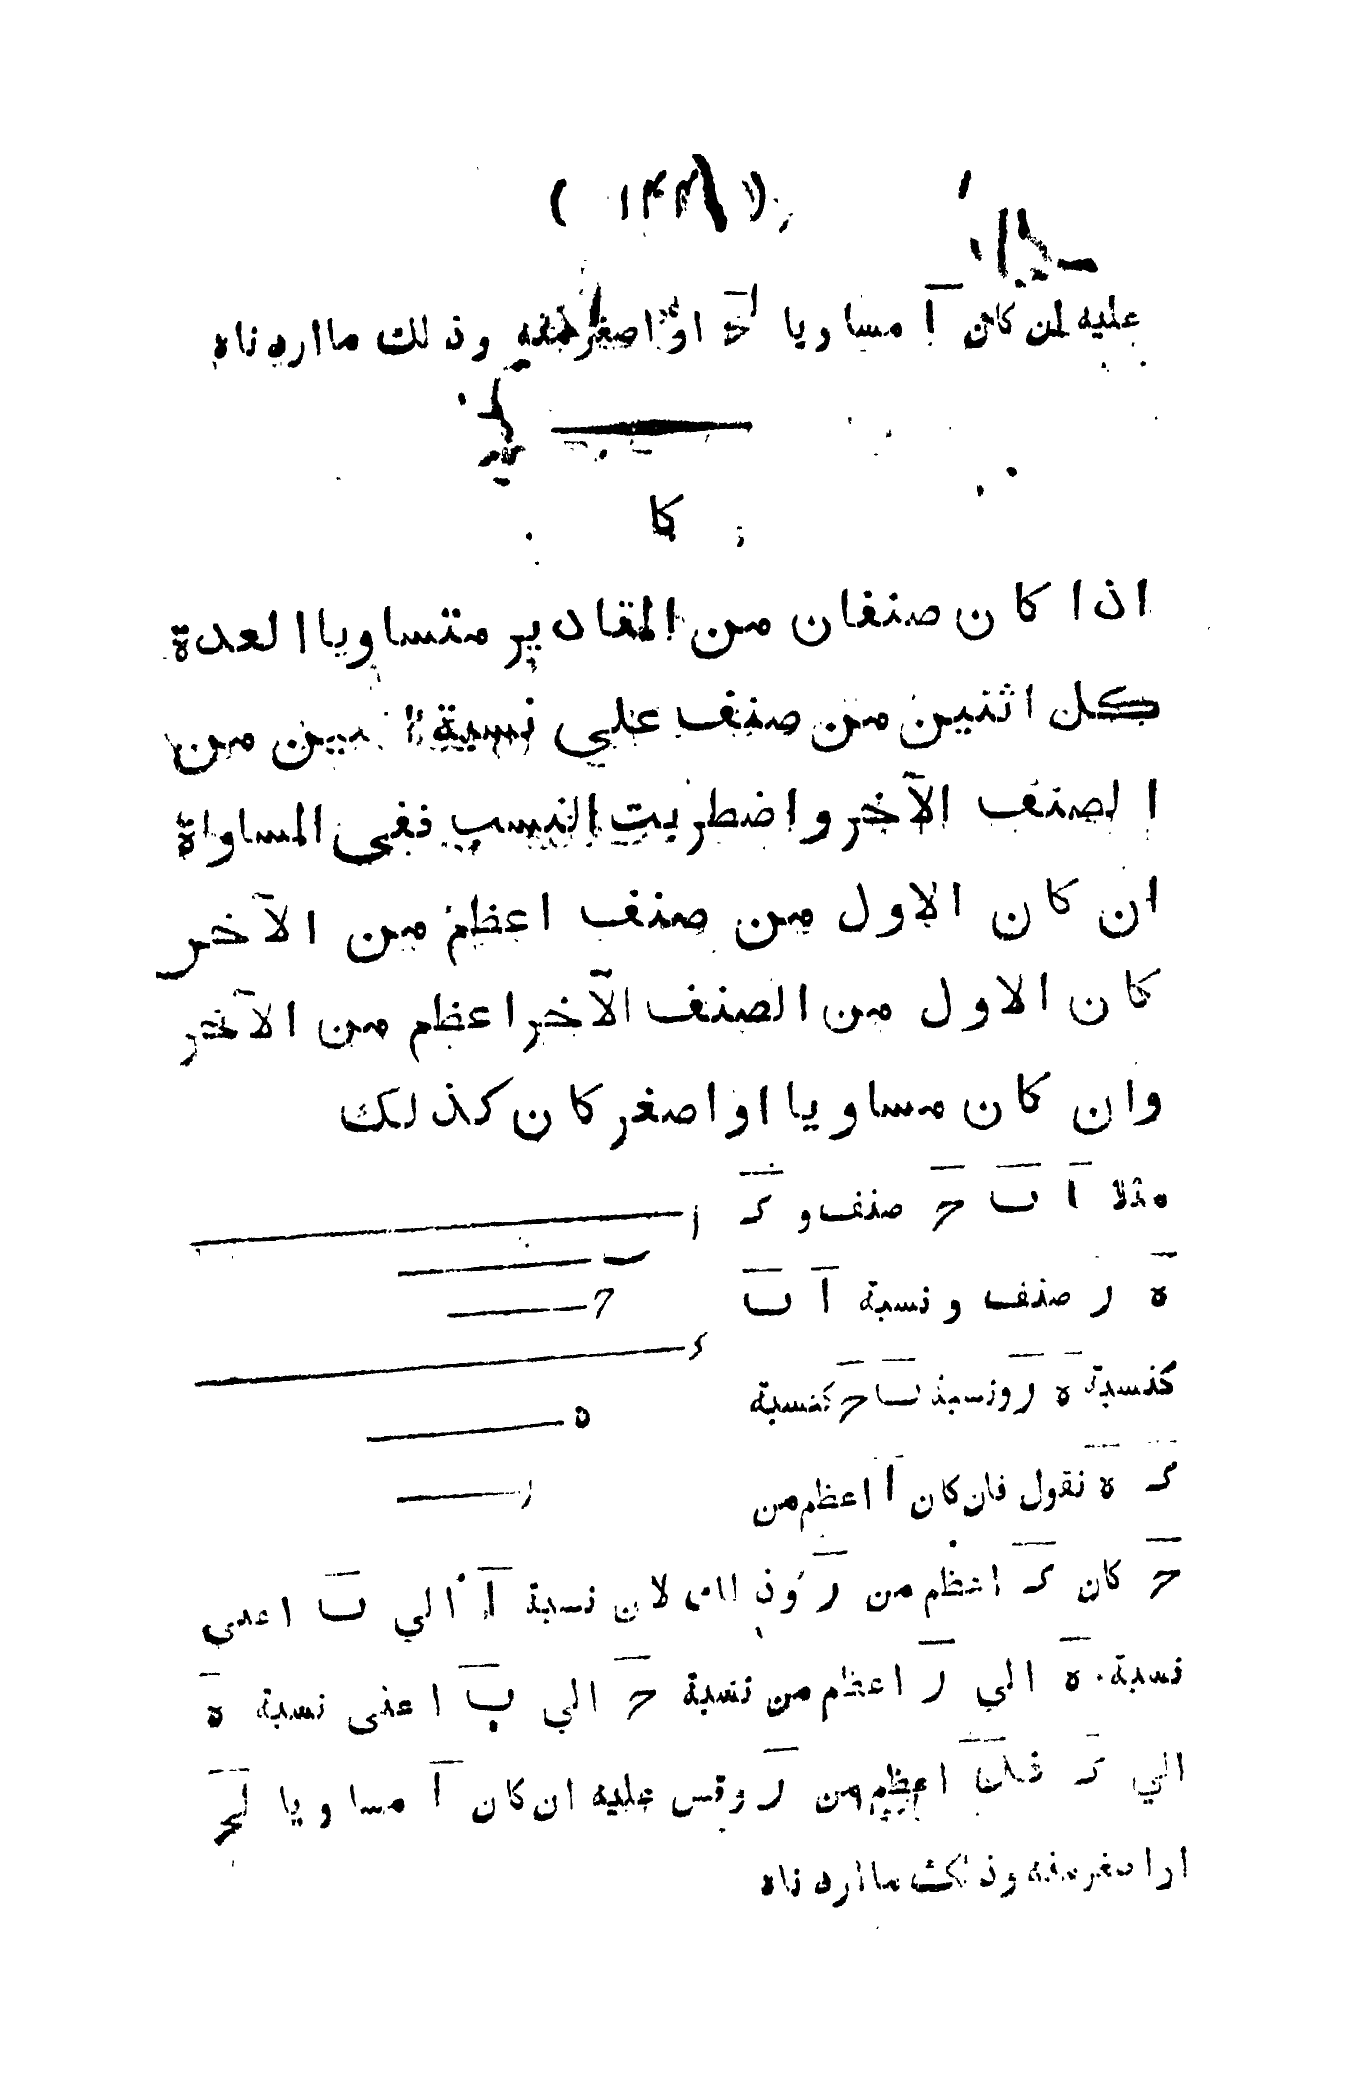 عليه ان كان ا مساويا لحـ او اصغر منه وذلك ما اردناه
كا
اذا كان صنفان من المقادير متساويا العدة
كل اثنين من صنف علي نسبة اثنين من
الصنف الآخر واضطربت النسب ففي المساواة
ان كان الاول من صنف اعظم من الآخر
كان الاول من الصنف الآخر اعظم من الآخر
وان كان مساويا او اصغر كان كذلك
مثلا ا ب حـ صنف و د
ه ر صنف ونسبة ا ب
كنسبة ه ر ونسبة ب حـ كنسبة
د ه نقول فان كان ا اعظم من
حـ كان د اعظم من ر وذلك لان نسبة ا الي ب اعني
نسبة ه الي ر اعظم من نسبة حـ الي ب اعني نسبة ه
الي د اعظم من ر وقس عليه ان كان ا مساويا لحـ
او اصغر منه وذلك ما اردناه
ا
ب
حـ
د
ه
ر